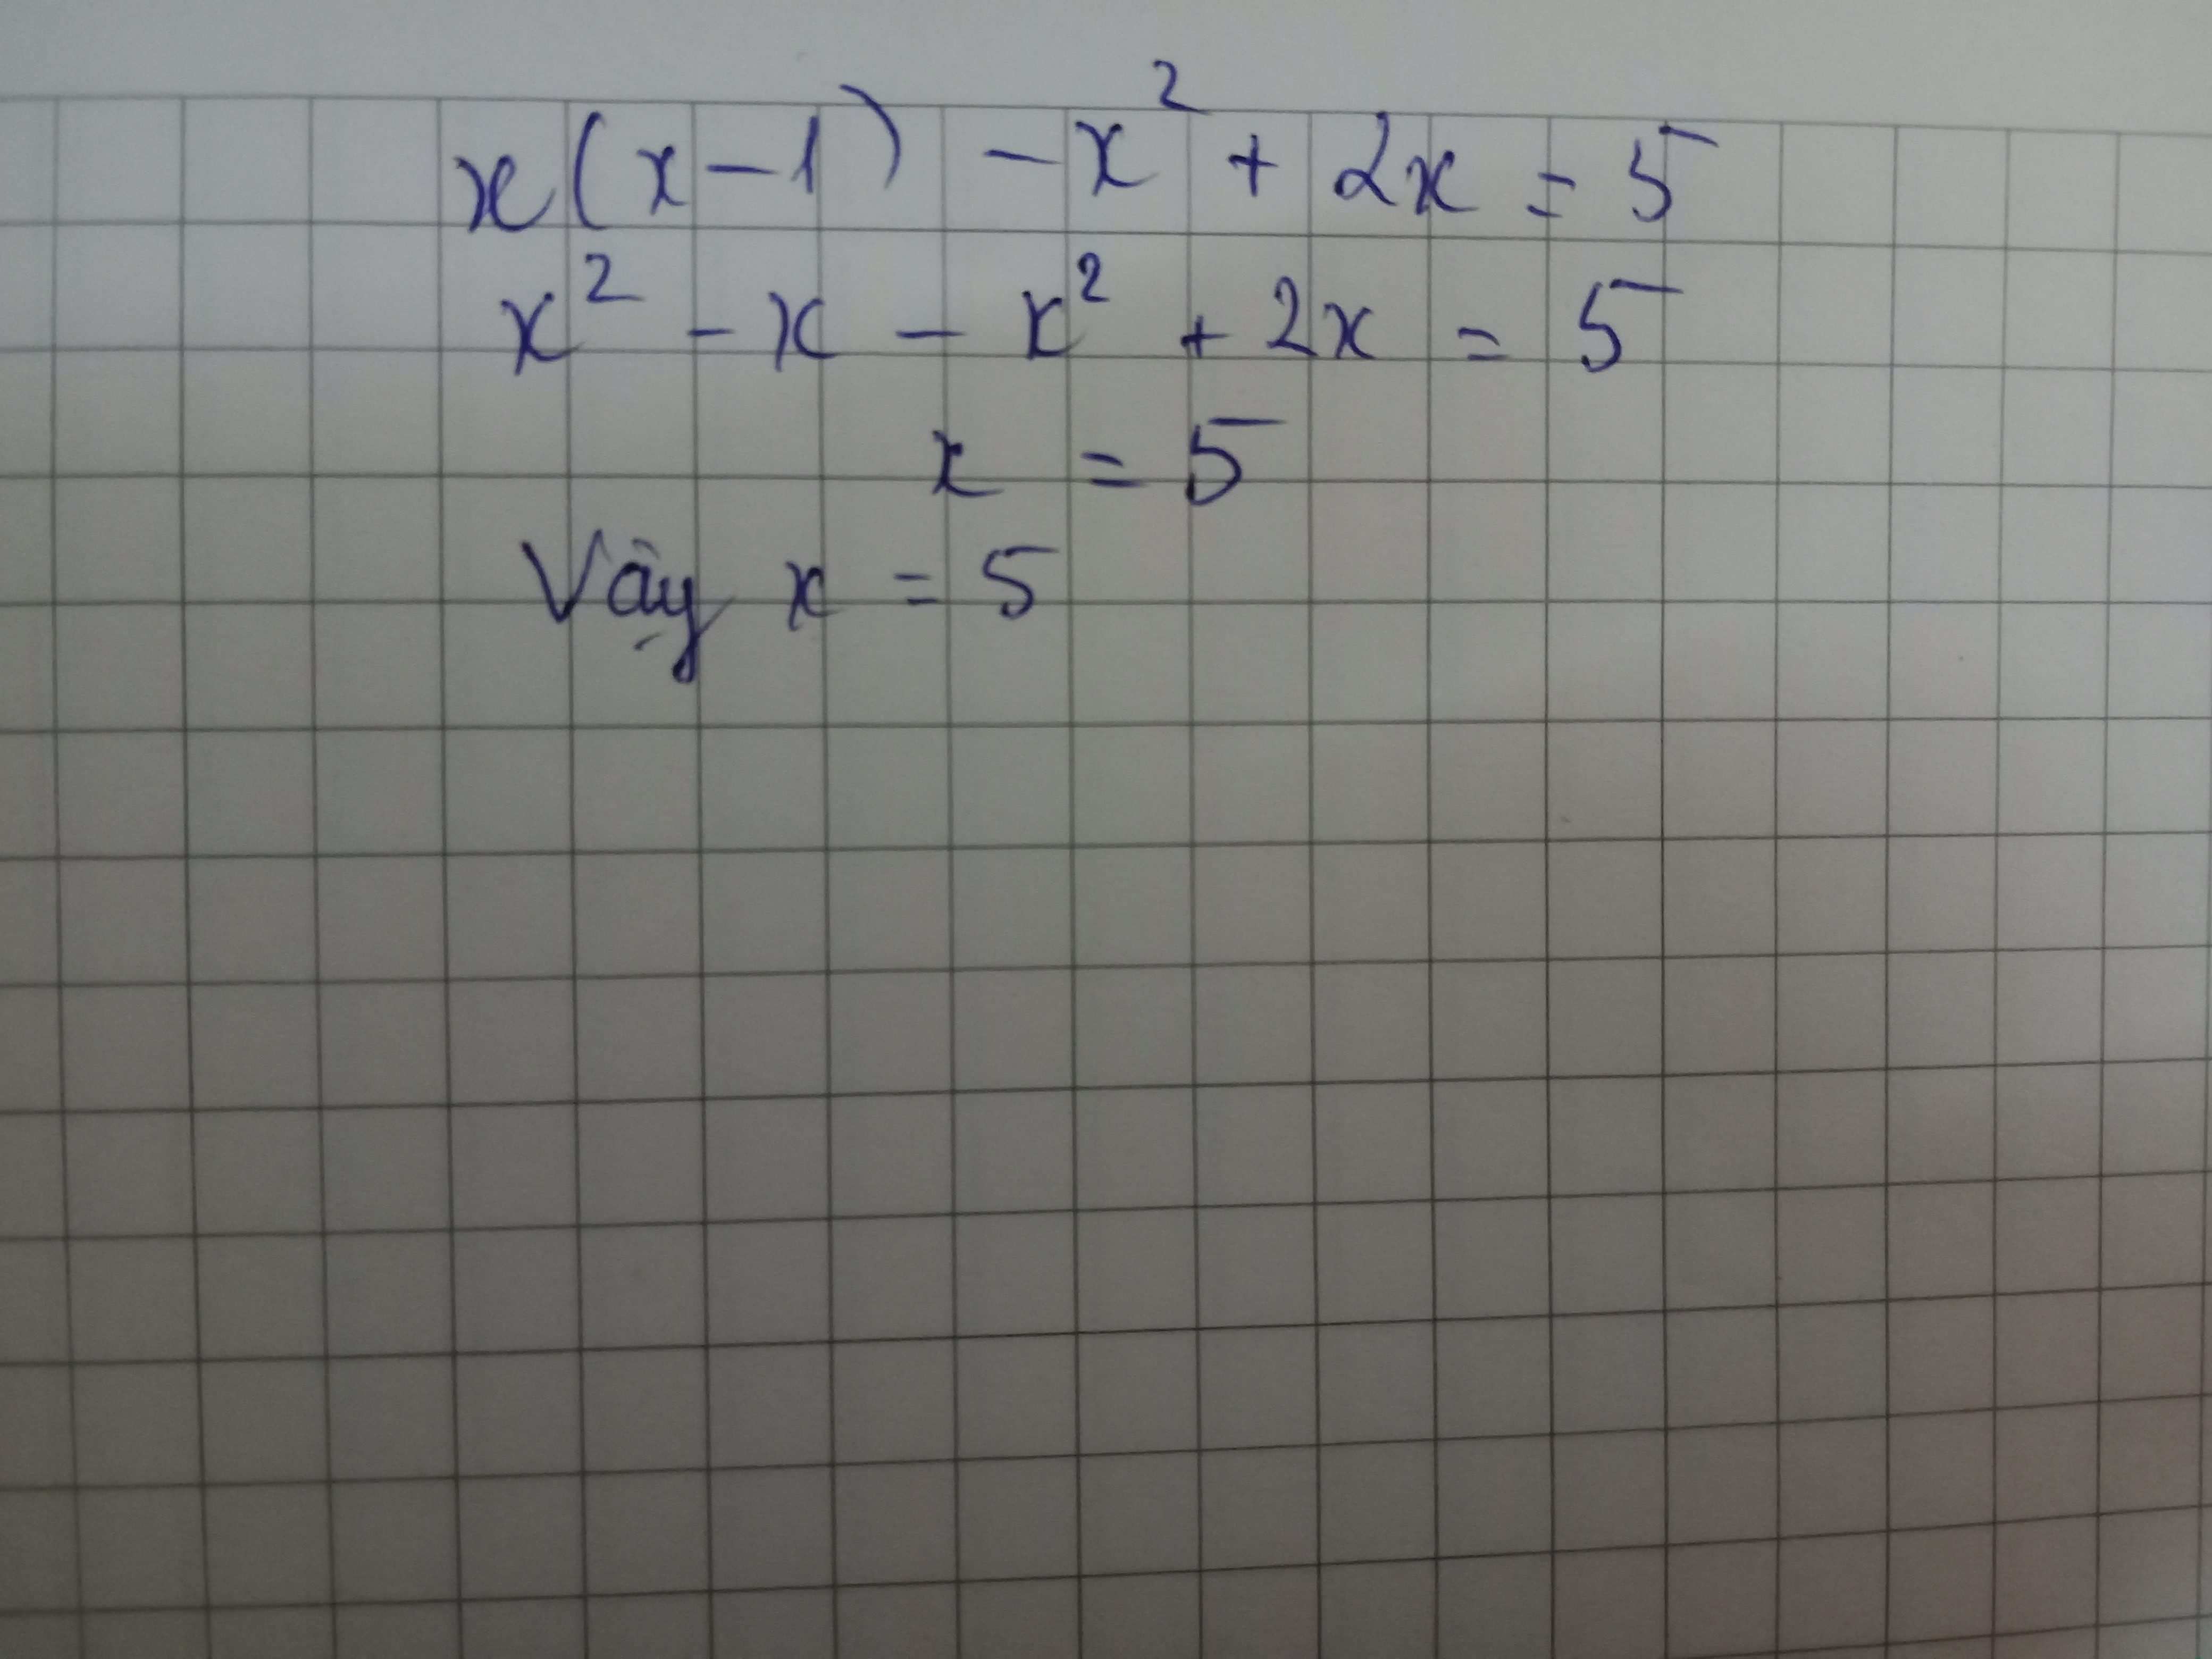 x(x-1) - x² + 2x = 5
x² - x - x² + 2x = 5
x = 5
Vậy x = 5